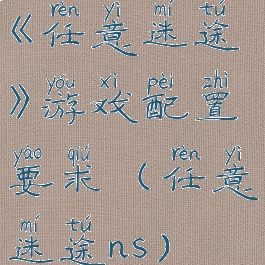 rèn yì mí tú
《任意迷途
yóu xì pèi zhì
》游戏配置
yāo qiú rèn yì
要求（任意
mí tú
迷途ns）